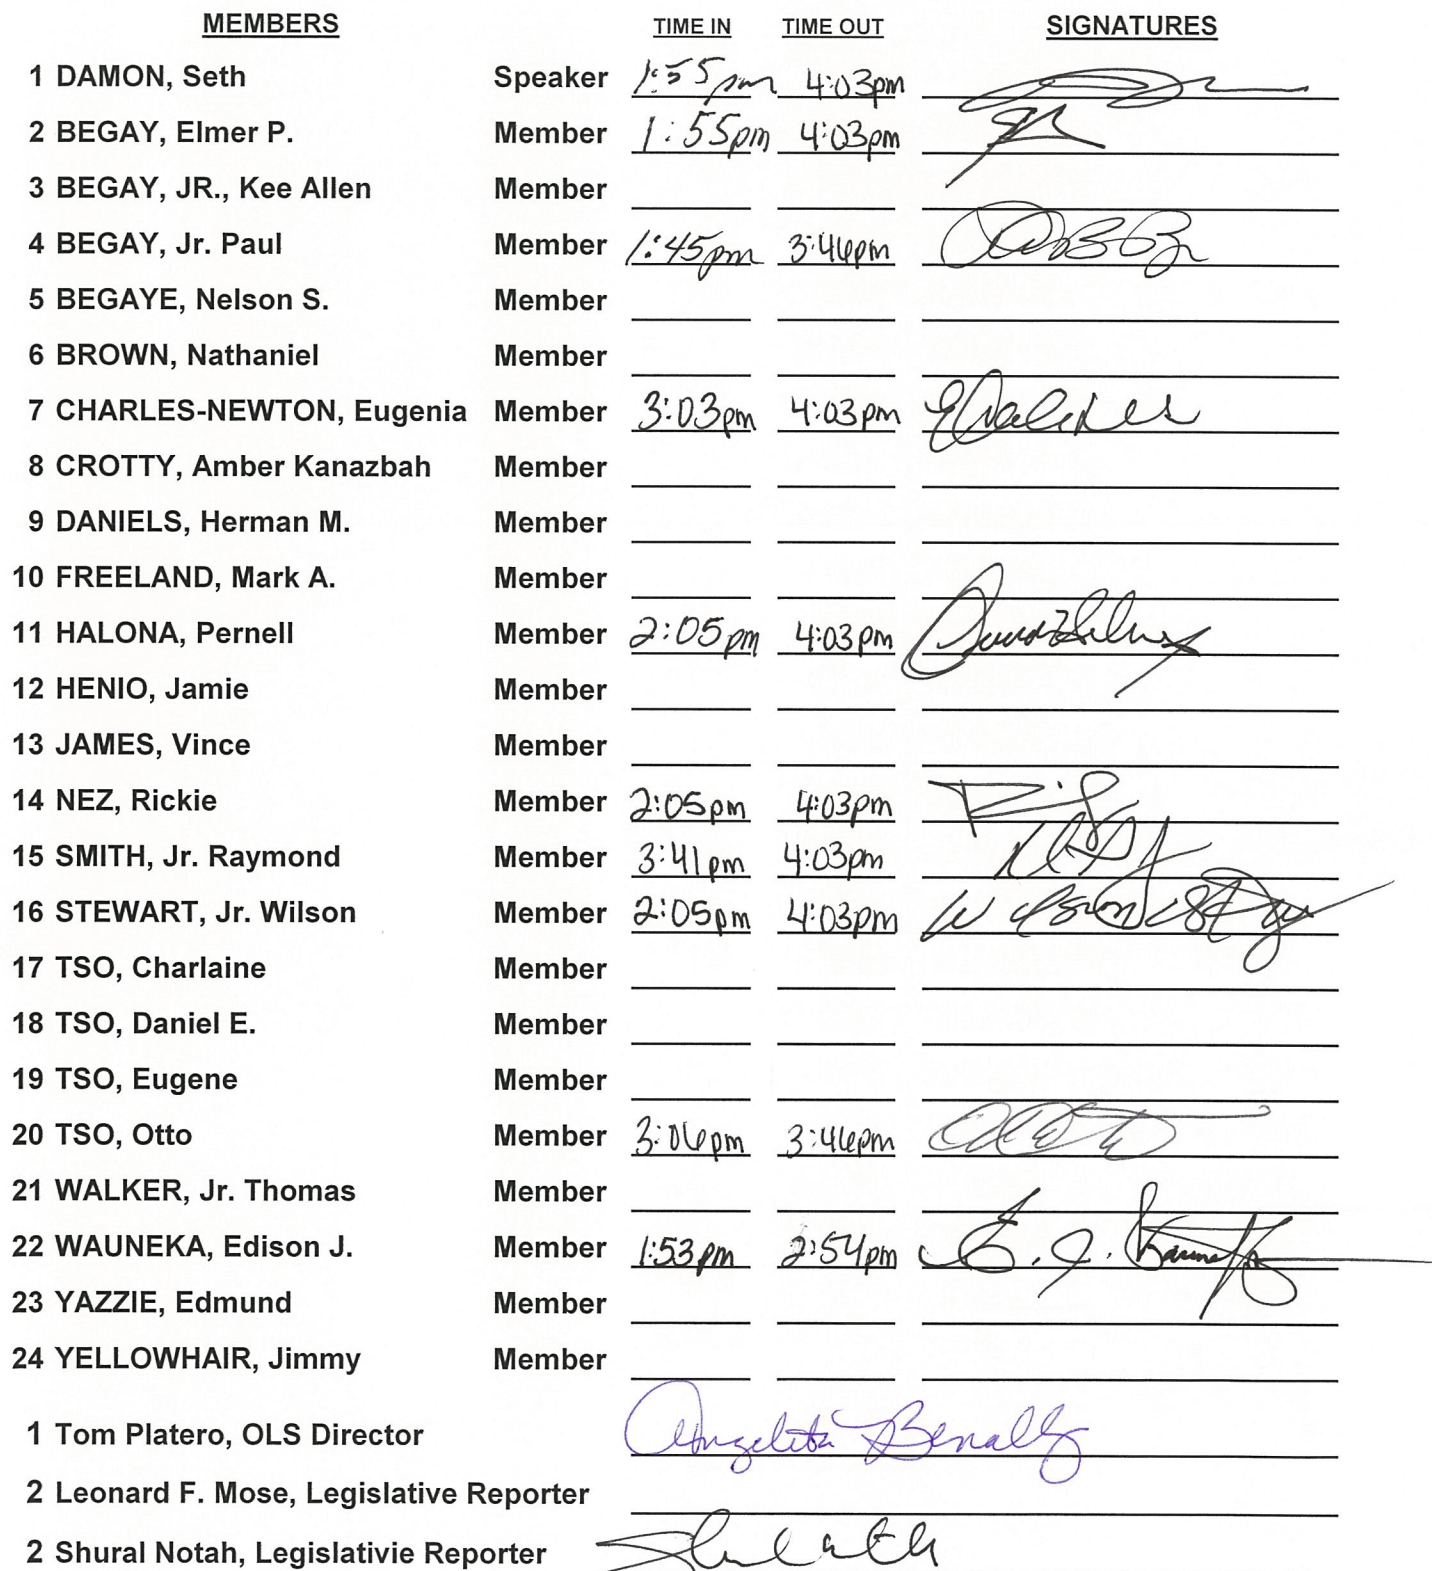 MEMBERS TIME IN TIME OUT SIGNATURES
1 DAMON, Seth Speaker 1:55pm 4:03pm
2 BEGAY, Elmer P. Member 1:55pm 4:03pm
3 BEGAY, JR., Kee Allen Member
4 BEGAY, Jr. Paul Member 1:45pm 3:46pm
5 BEGAYE, Nelson S. Member
6 BROWN, Nathaniel Member
7 CHARLES-NEWTON, Eugenia Member 3:03pm 4:03pm
8 CROTTY, Amber Kanazbah Member
9 DANIELS, Herman M. Member
10 FREELAND, Mark A. Member
11 HALONA, Pernell Member 2:05pm 4:03pm
12 HENIO, Jamie Member
13 JAMES, Vince Member
14 NEZ, Rickie Member 2:05pm 4:03pm
15 SMITH, Jr. Raymond Member 3:41pm 4:03pm
16 STEWART, Jr. Wilson Member 2:05pm 4:03pm
17 TSO, Charlaine Member
18 TSO, Daniel E. Member
19 TSO, Eugene Member
20 TSO, Otto Member 3:06pm 3:46pm
21 WALKER, Jr. Thomas Member
22 WAUNEKA, Edison J. Member 1:53pm 2:54pm
23 YAZZIE, Edmund Member
24 YELLOWHAIR, Jimmy Member
1 Tom Platero, OLS Director Angelita Benally
2 Leonard F. Mose, Legislative Reporter
2 Shural Notah, Legislativie Reporter